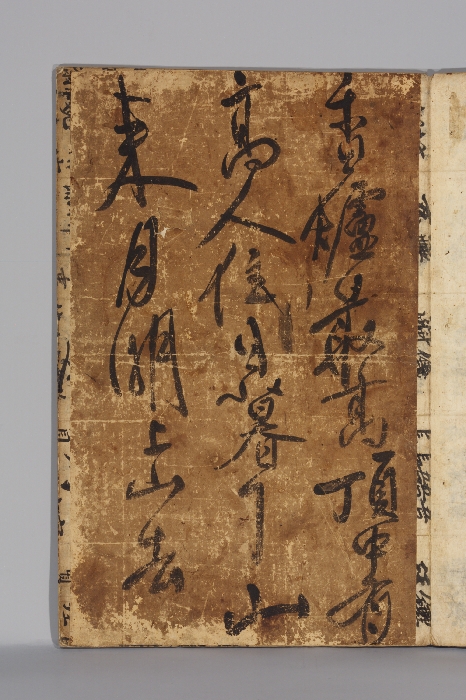 香爐最高頂中有
高人住日暮下山
来月明上山去